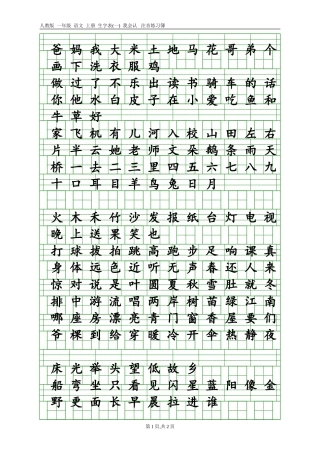 人教版 一年级 语文 上册 生字表(一) 我会认 注音练习簿
爸妈我大米土地马花哥弟个
画下洗衣服鸡
做过了不乐出读书骑车说话
你他水白皮子在小朋友和爱
牛草好
家飞机有儿河入校山田左右
片半云她老师文朵鹅条雨天
桥一去二三里四五六七八九
十口耳目羊鸟兔日月
火木禾竹沙发报纸台灯电视
晚上送果笑也
打球拔拍跳高跑步足响课真
身体远色近听无声春还人来
惊对说是叶机亮机做我全冬
排中游流唱两岸树苗绿江南
哪座房漂亮青香屋要们
爷棵到给穿暖冷开伞热静夜
床光举头望低故乡
船弯坐只看见闪星蓝阳像金
野更面长早晨拉进谁
第 1 页,共 2 页